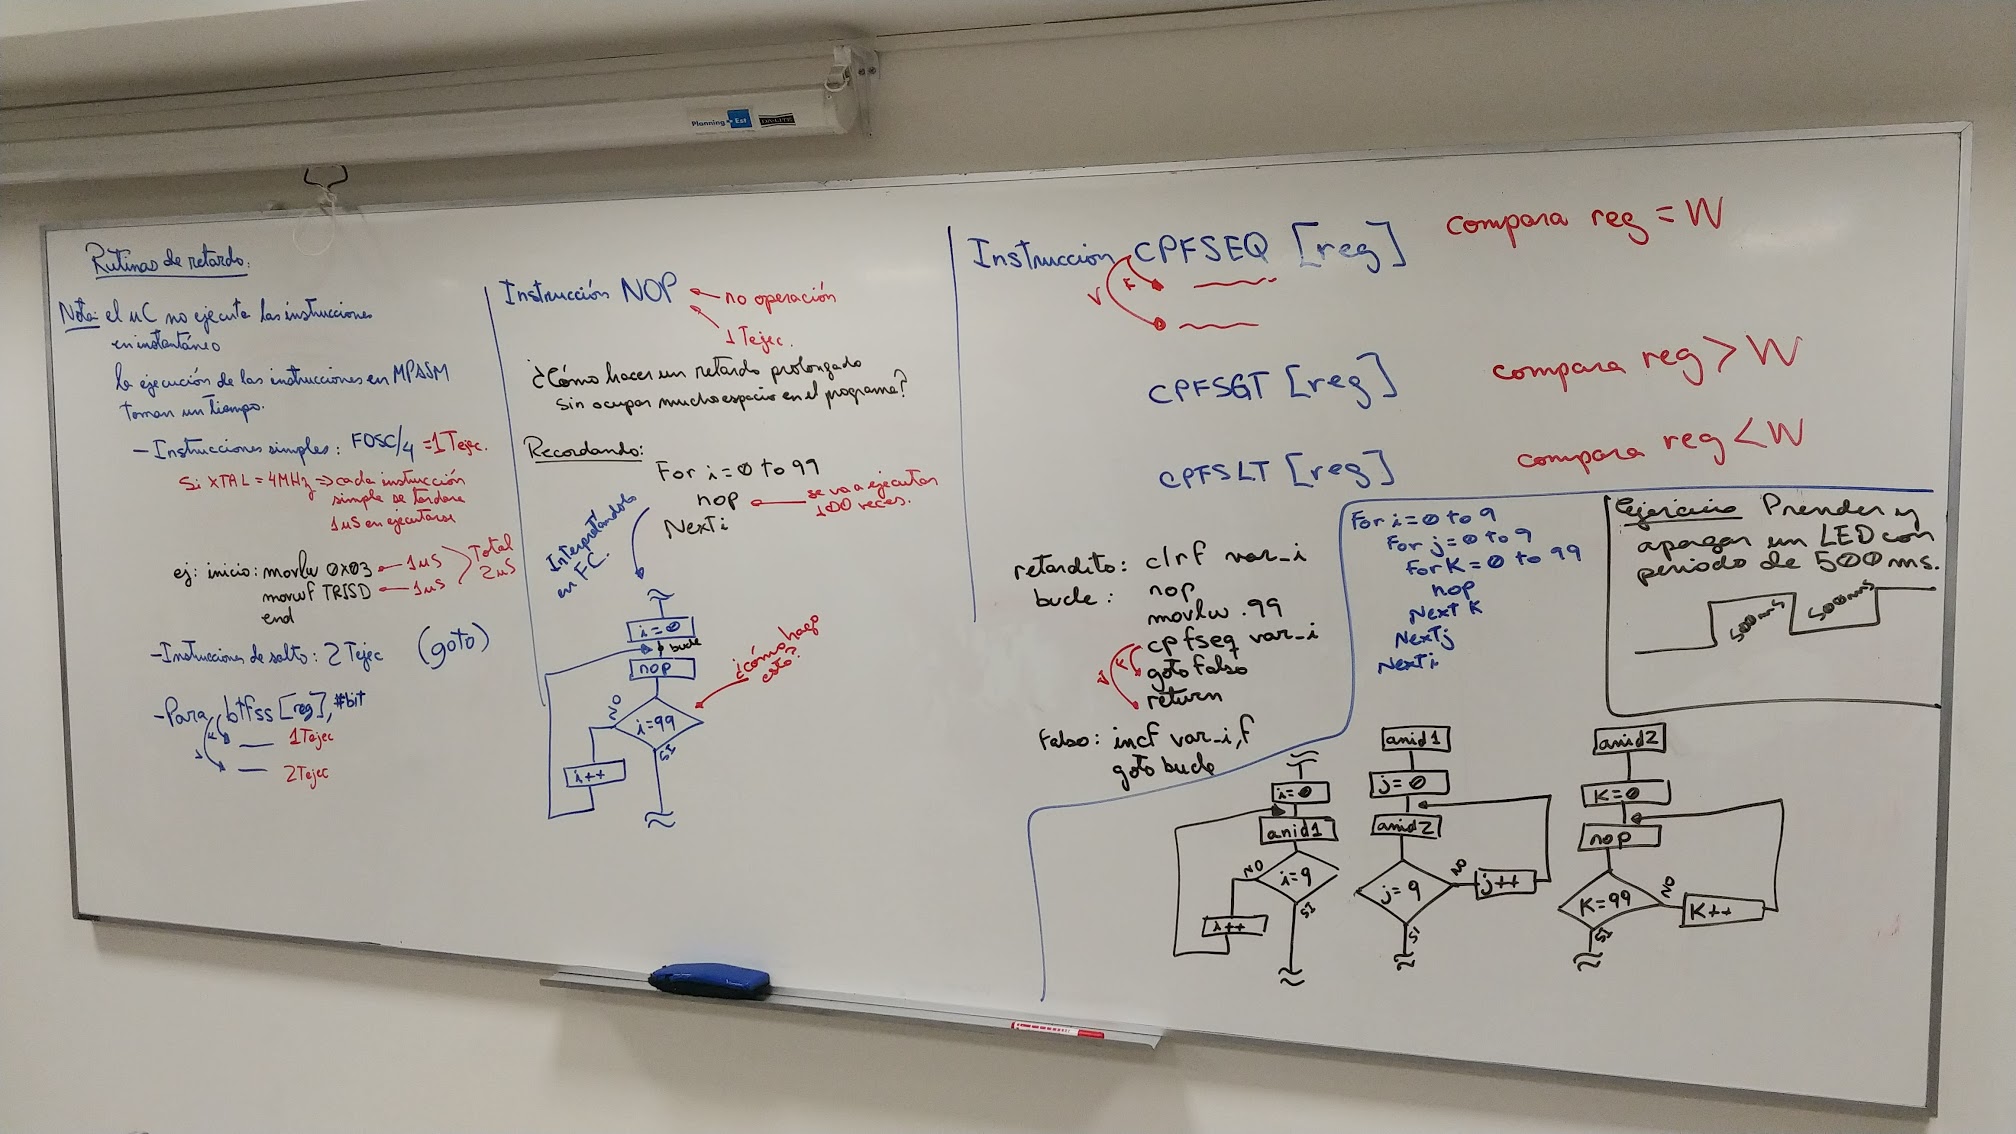 Planning Est
DA-LITE
Rutinas de retardo:
Nota: el uC no ejecuta las instrucciones
en instantáneo
la ejecución de las instrucciones en MPASM
toman un tiempo.
- Instrucciones simples: FOSC/4 = 1 Tejec.
Si XTAL = 4MHz => cada instrucción
simple se tardara
1uS en ejecutarse
ej: inicio: movlw 0x03 1uS
movwf TRISD 1uS
end
Total
2uS
- Instrucciones de salto: 2 Tejec (goto)
- Para btfss [reg], #bit
F 1Tejec
V 2Tejec
Instrucción NOP
no operación
1 Tejec.
¿Cómo hacer un retardo prolongado
sin ocupar mucho espacio en el programa?
Recordando:
For i = 0 to 99
nop
se va a ejecutar
100 veces.
Next i
Interpretandolo
en FC.
i = 0
bucle
nop
i = 99
NO
SI
i++
¿cómo hago
esto?
Instruccion CPFSEQ [reg] compara reg = W
V F
CPFSGT [reg] compara reg > W
CPFSLT [reg] compara reg < W
retardito: clrf var_i
bucle: nop
movlw .99
cpfseq var_i
F goto falso
V return
falso: incf var_i,f
goto bucle
For i = 0 to 9
For j = 0 to 9
For K = 0 to 99
nop
Next K
Next j
Next i
Ejercicio Prender y
apagar un LED con
periodo de 500 ms.
500ms 500ms
i = 0
anid1
i = 9
NO
SI
i++
anid1
j = 0
anid2
j = 9
NO
SI
j++
anid2
K = 0
nop
K = 99
NO
SI
K++